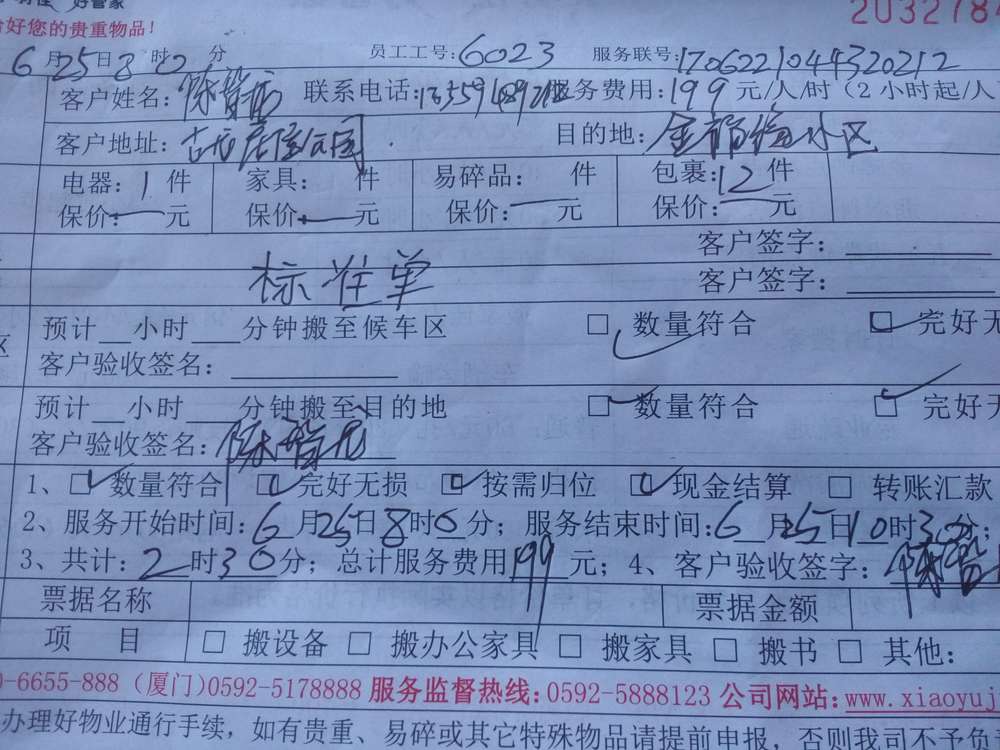 好您的贵重物品！
2032784
6月25日8时0分 员工工号：6023 服务联号：1706221044320212
客户姓名： 联系电话： 服务费用：199元/人/时（2小时起/人
客户地址： 公园 目的地：金 小区
电器：1件 家具： 件 易碎品： 件 包裹：12件
保价：—元 保价：—元 保价：—元 保价：—元
客户签字：
标准单 客户签字：
预计 小时 分钟搬至候车区 □ 数量符合 □ 完好无
客户验收签名：
预计 小时 分钟搬至目的地 □ 数量符合 □ 完好无
客户验收签名：
1、□ 数量符合 □ 完好无损 □ 按需归位 □ 现金结算 □ 转账汇款
2、服务开始时间：6月25日8时0分；服务结束时间：6月25日10时30分；
3、共计：2时30分；总计服务费用199元；4、客户验收签字：
票据名称 票据金额
项 目 □ 搬设备 □ 搬办公家具 □ 搬家具 □ 搬书 □ 其他：
0-6655-888（厦门）0592-5178888 服务监督热线：0592-5888123 公司网站：www.xiaoyuj
办理好物业通行手续，如有贵重、易碎或其它特殊物品请提前申报，否则我司不予负